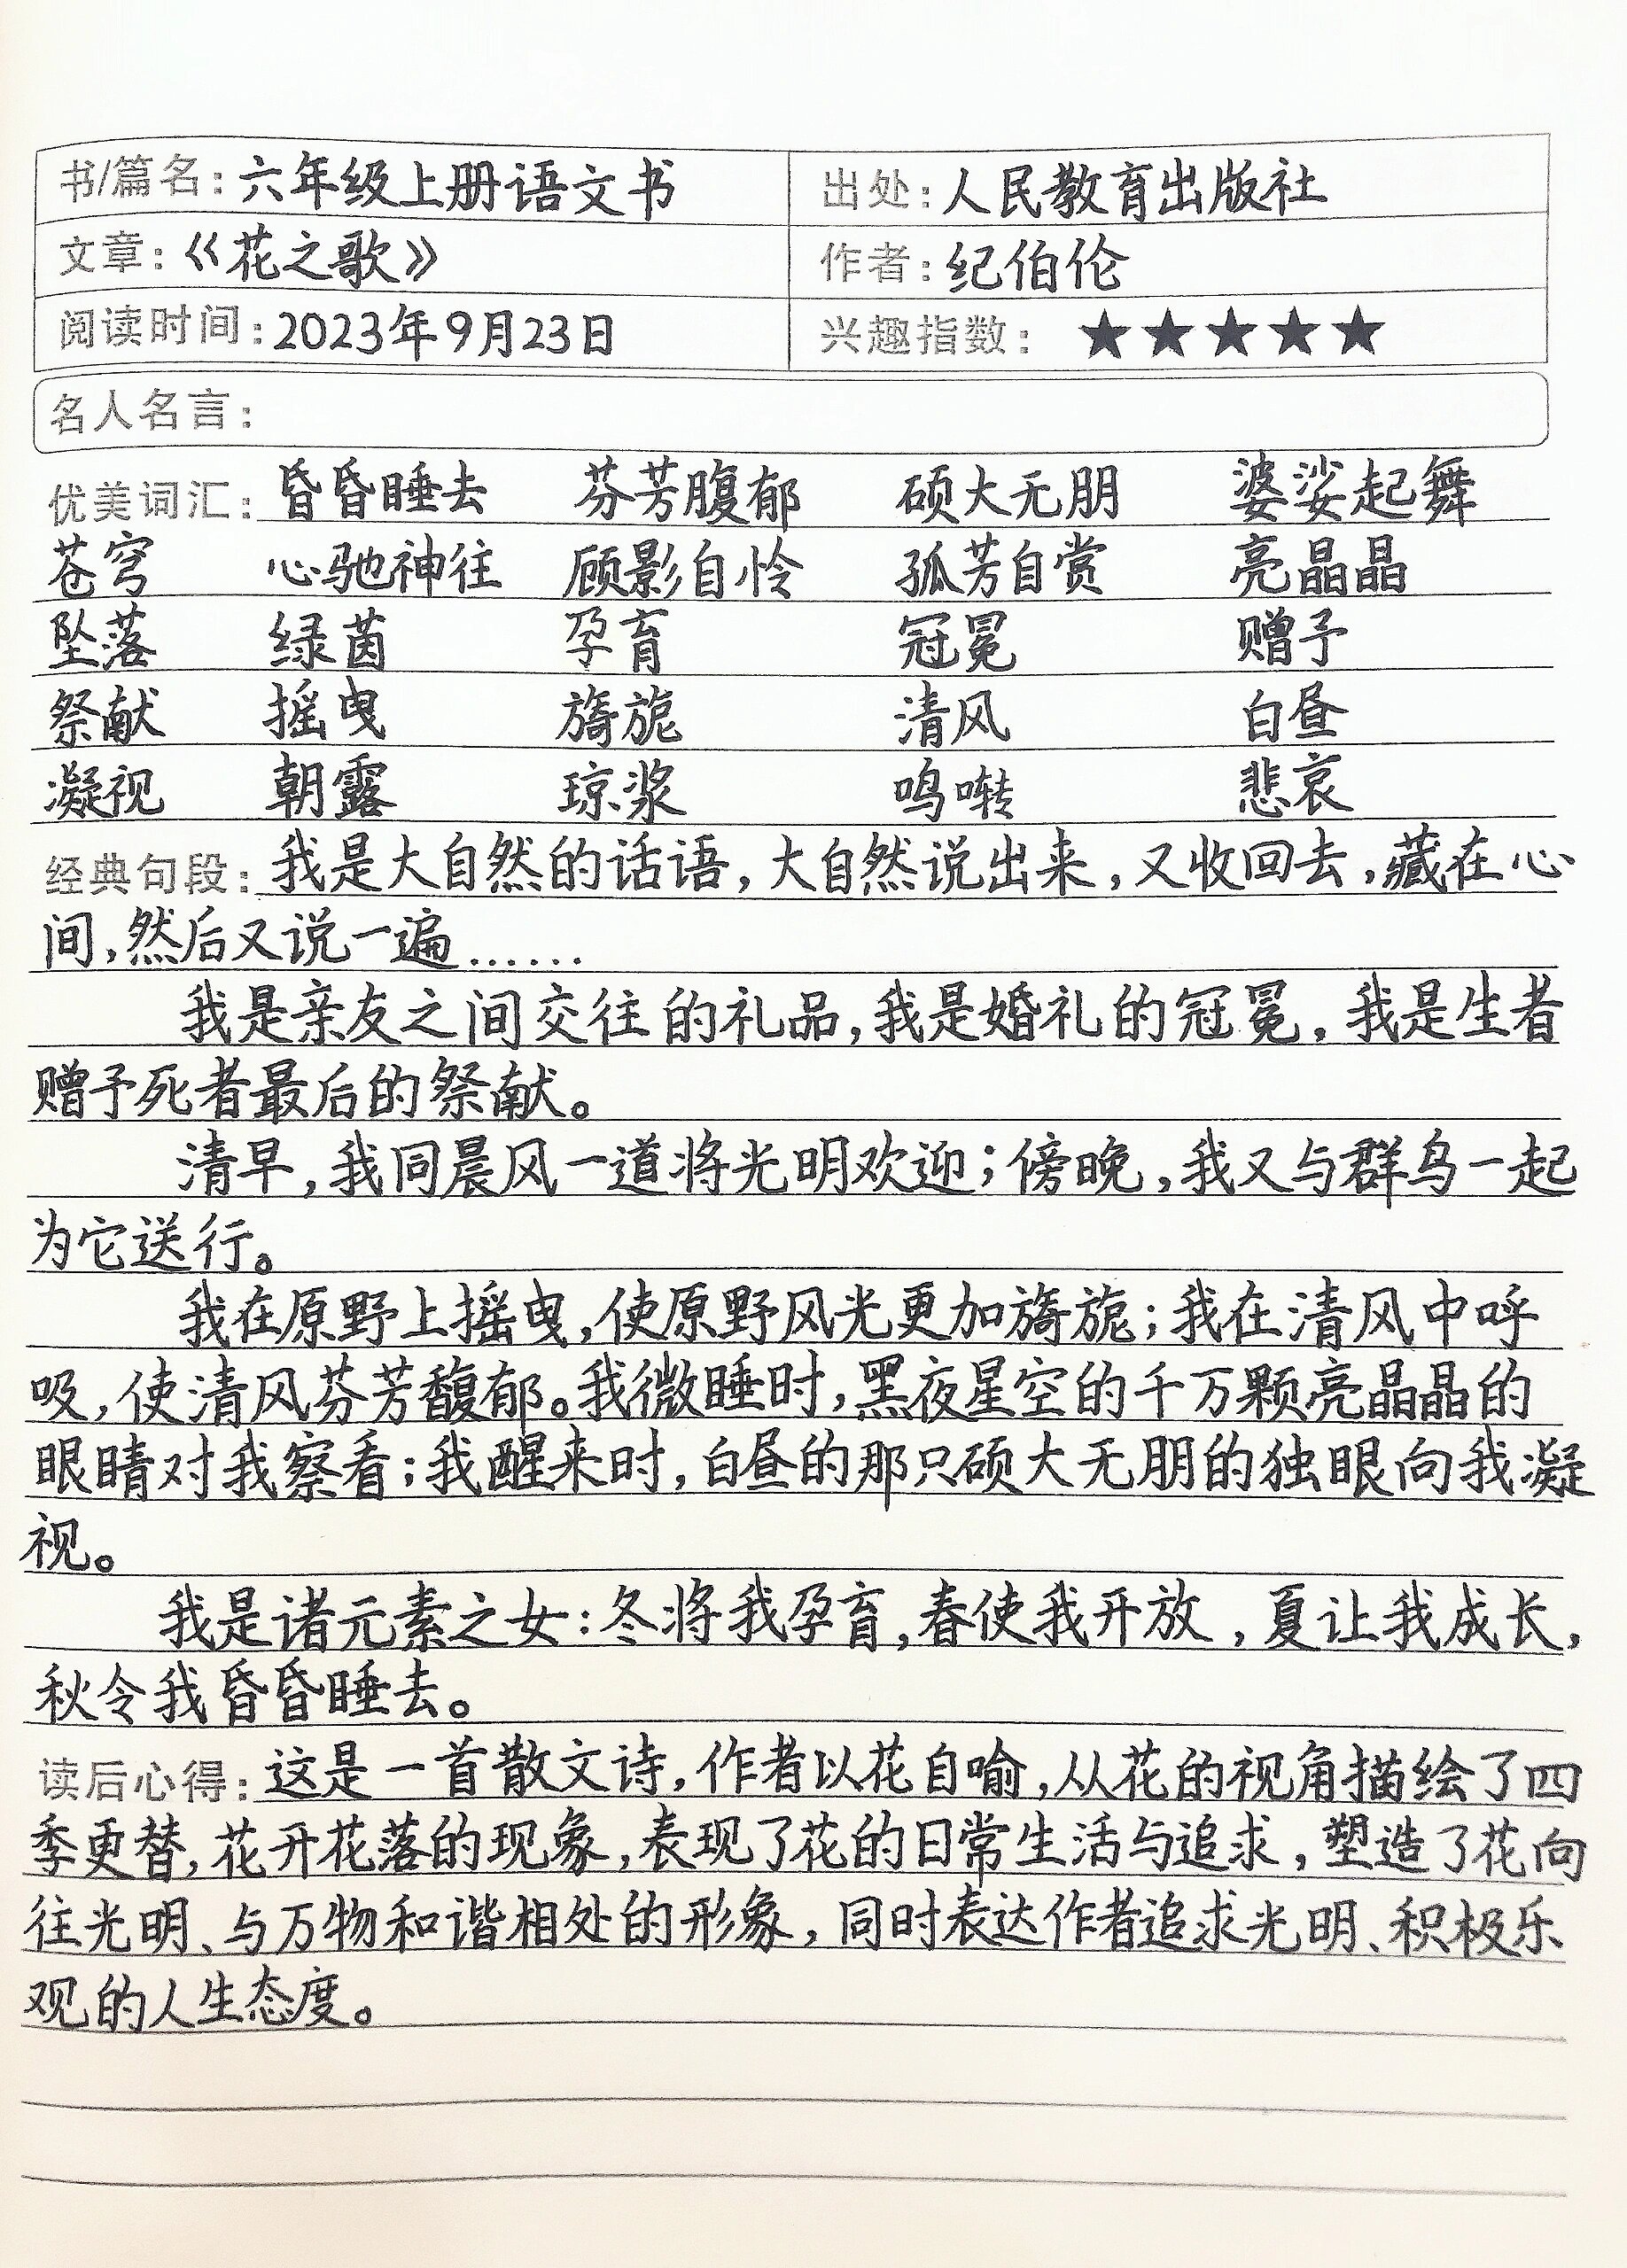 书/篇名：六年级上册语文书 出处：人民教育出版社
文章：《花之歌》 作者：纪伯伦
阅读时间：2023年9月23日 兴趣指数：★★★★★
名人名言：
优美词汇：昏昏睡去 芬芳腹郁 硕大无朋 婆娑起舞
苍穹 心驰神往 顾影自怜 孤芳自赏 亮晶晶
坠落 绿茵 孕育 冠冕 赠予
祭献 摇曳 旖旎 清风 白昼
凝视 朝露 琼浆 鸣啭 悲哀
经典句段：我是大自然的话语，大自然说出来，又收回去，藏在心
间，然后又说一遍……
我是亲友之间交往的礼品，我是婚礼的冠冕，我是生者
赠予死者最后的祭献。
清早，我同晨风一道将光明欢迎；傍晚，我又与群鸟一起
为它送行。
我在原野上摇曳，使原野风光更加旖旎；我在清风中呼
吸，使清风芬芳馥郁。我微睡时，黑夜星空的千万颗亮晶晶的
眼睛对我察看；我醒来时，白昼的那只硕大无朋的独眼向我凝
视。
我是诸元素之女：冬将我孕育，春使我开放，夏让我成长，
秋令我昏昏睡去。
读后心得：这是一首散文诗，作者以花自喻，从花的视角描绘了四
季更替，花开花落的现象，表现了花的日常生活与追求，塑造了花向
往光明、与万物和谐相处的形象，同时表达作者追求光明、积极乐
观的人生态度。